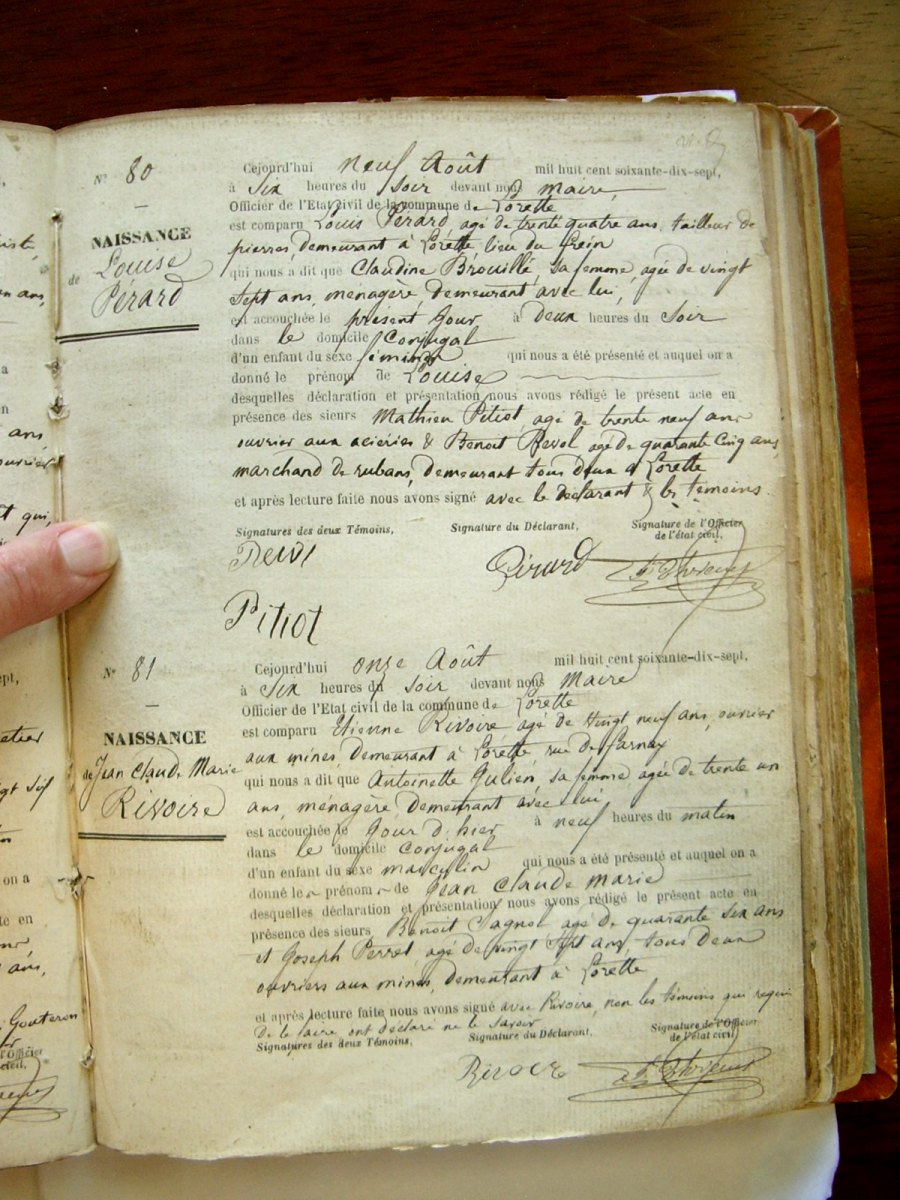 Nº 80
NAISSANCE
de Louise
Pérard
Cejourd'hui neuf Août mil huit cent soixante-dix-sept,
à Six heures du Soir devant nous maire
Officier de l'Etat civil de la commune de Lorette
est comparu Louis Pérard, agé de trente quatre ans, tailleur de
pierres, demeurant à Lorette, lieu du
qui nous a dit que Claudine Brouillé, sa femme, agée de vingt
sept ans, ménagère, demeurant avec lui,
est accouchée le présent jour à deux heures du Soir
dans le domicile Conjugal
d'un enfant du sexe féminin qui nous a été présenté et auquel on a
donné le prénom de Louise
desquelles déclaration et présentation nous avons rédigé le présent acte en
présence des sieurs Mathieu Pitiot, agé de trente neuf ans
ouvrier aux aciéries & Benoit Revol agé de quarante Cinq ans,
marchand de rubans, demeurant tous deux à Lorette
et après lecture faite nous avons signé avec le déclarant & les témoins.
Signatures des deux Témoins, Signature du Déclarant, Signature de l'Officier
de l'état civil,
Pérard
Pitiot
Nº 81
NAISSANCE
de Jean Claude Marie
Rivoire
Cejourd'hui onze Août mil huit cent soixante-dix-sept,
à Six heures du Soir devant nous Maire
Officier de l'Etat civil de la commune de Lorette
est comparu Etienne Rivoire agé de vingt neuf ans, ouvrier
aux mines, demeurant à Lorette, rue de farnay
qui nous a dit que Antoinette Julien, sa femme, agée de trente un
ans, ménagère, demeurant avec lui
est accouchée le jour d'hier à neuf heures du matin
dans le domicile Conjugal
d'un enfant du sexe masculin qui nous a été présenté et auquel on a
donné le prénom de Jean Claude Marie
desquelles déclaration et présentation nous avons rédigé le présent acte en
présence des sieurs Benoit Sagnol agé de quarante six ans
et Joseph Perret agé de vingt sept ans, tous deux
ouvriers aux mines, demeurant à Lorette
et après lecture faite nous avons signé avec Rivoire, non les témoins qui requis
de le faire, ont déclaré ne le savoir
Signatures des deux Témoins, Signature du Déclarant, Signature de l'Officier
de l'état civil,